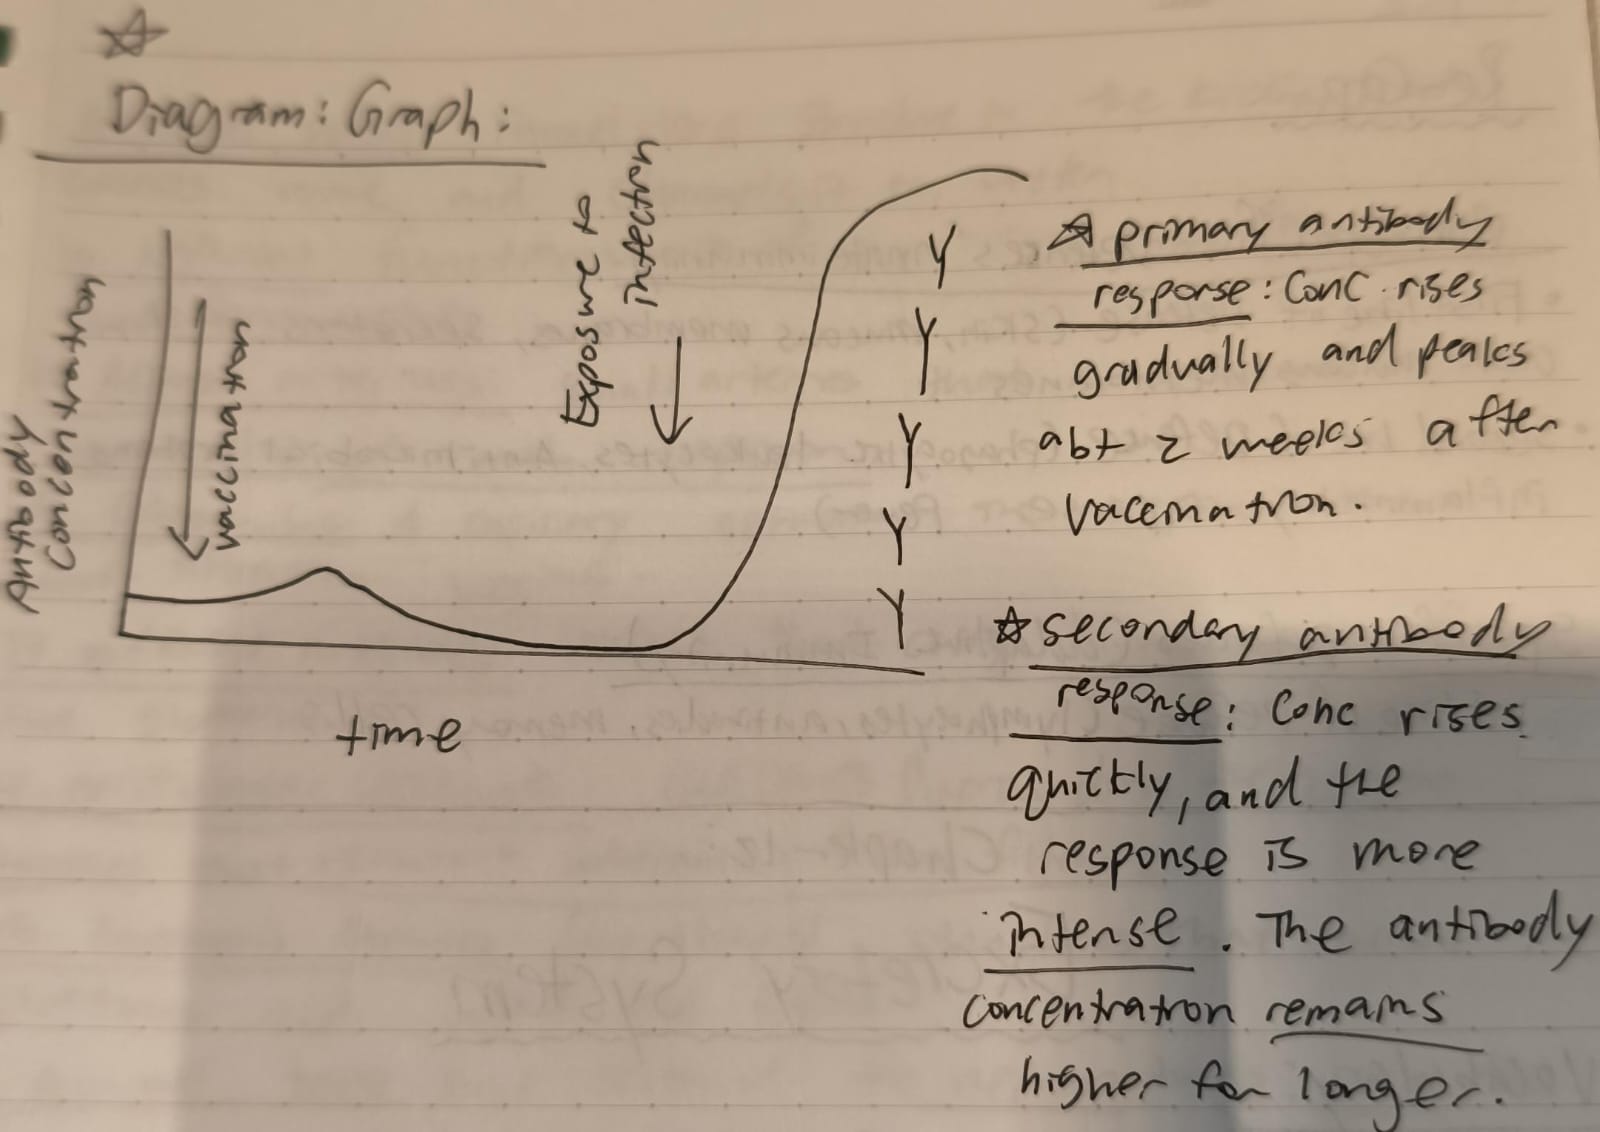 Diagram: Graph:
Antibody
concentration
vaccination
Exposure to
infection
time
primary antibody
response: Conc rises
gradually and peaks
abt 2 weeks after
vaccination.
secondary antibody
response: Conc rises
quickly, and the
response is more
intense. The antibody
concentration remains
higher for longer.